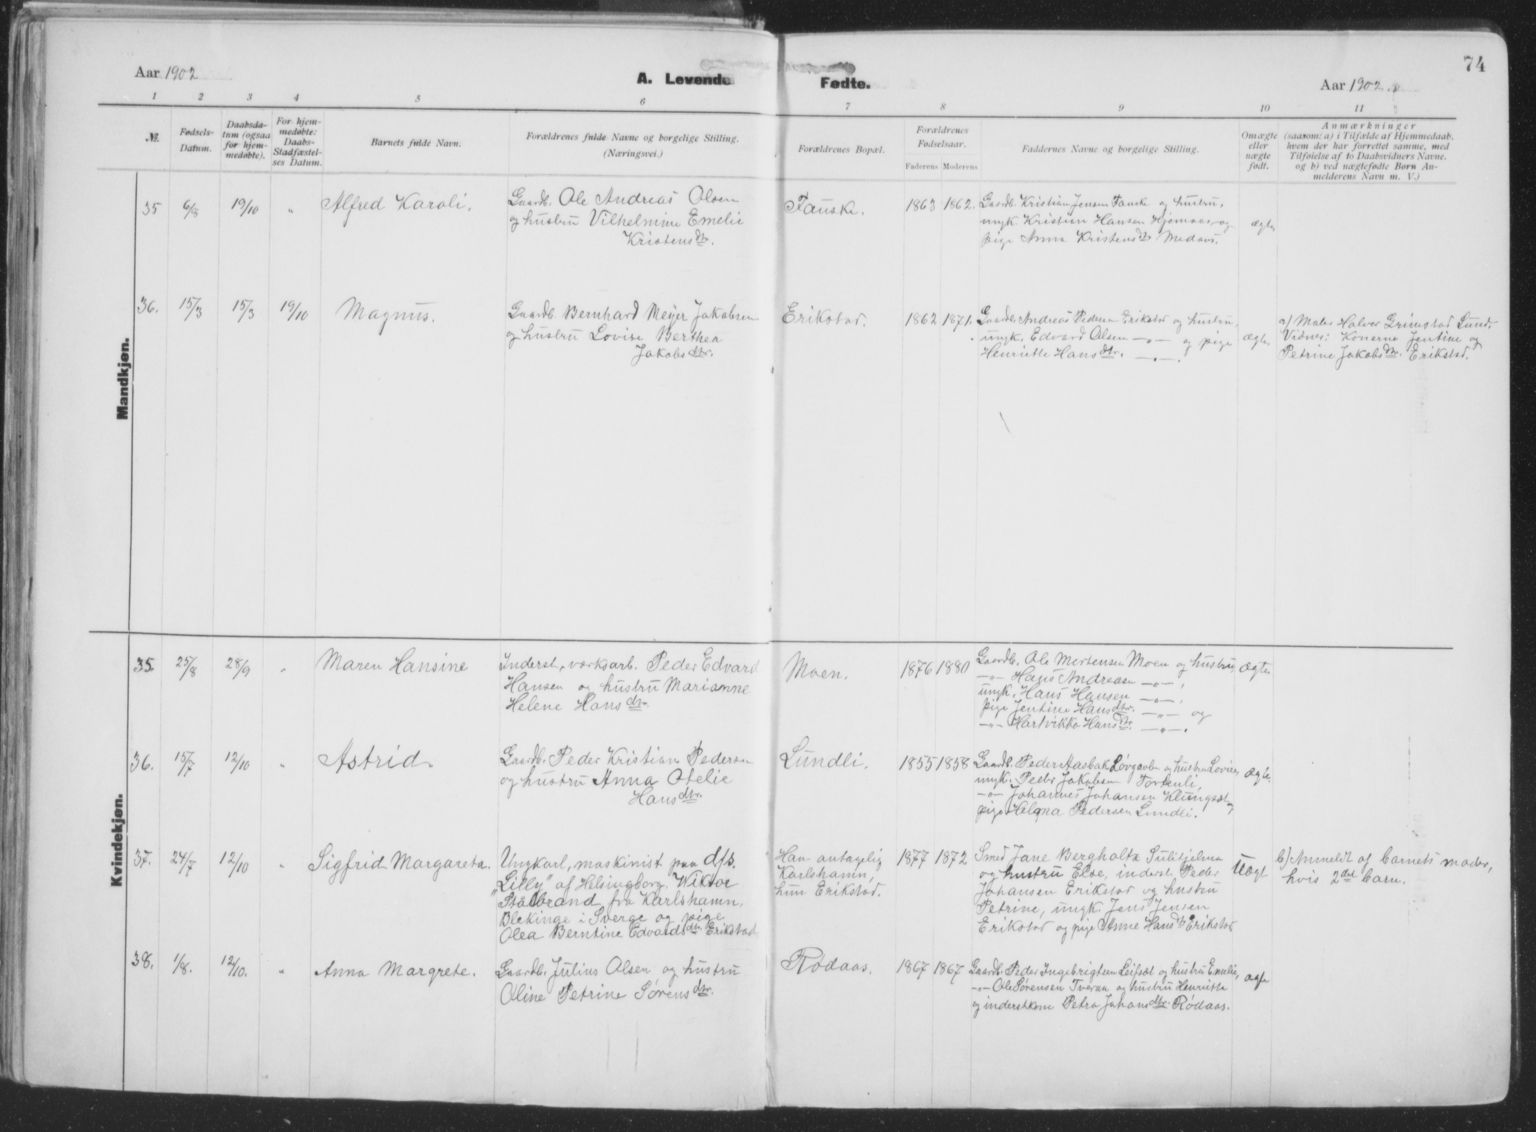 74
Aar 1902
A. Levende Fødte.
Aar 1902
1 2 3 4 5 6 7 8 9 10 11
№.
Fødsels-
Datum.
Daabsda-
tum (ogsaa
for hjem-
medøbte).
For hjem-
medøbte:
Daabs-
Stadfæstel-
ses Datum.
Barnets fulde Navn.
Forældrenes fulde Navne og borgelige Stilling.
(Næringsvei.)
Forældrenes Bopæl.
Forældrenes
Fødselsaar.
Faderens Moderens
Faddernes Navne og borgelige Stilling.
Omægte
eller
nægte
født.
Anmærkninger
(saasom: a) i Tilfælde af Hjemmedaab,
hvem der har forrettet samme, med
Tilføielse af to Daabsvidners Navne,
og b) ved nægtefødte Børn An-
melderens Navn m. V.)
Mandkjøn.
35 6/8 19/10 " Alfred Karoli.
Gaardb. Ole Andreas Olsen
og hustru Vilhelmine Emelie
Kristensdtr.
Fauske. 1863 1862.
Gaardb. Kristian Jensen Fauske og hustru,
ungk. Kristian Hansen Hjemaas, og
pige Anna Kristensdtr
ægte
36. 15/3 15/3 19/10 Magnus.
Gaardb. Bernhard Meyer Jakobsen
og hustru Lovise Berthea
Jakobsdtr.
Erikstad. 1862 1871.
Gaardb. Andreas Pedersen Erikstad og hustru,
ungk. Edvard Olsen —„— og pige
Henriette Hansdtr. —„—.
ægte
a) Mates Halvor Grimstad Lund.
Vidner: Konerne Jentine og
Petrine Jakobsdtr. Erikstad.
Kvindekjøn.
35. 25/8 28/9 " Maren Hansine
Inderst, værksarb. Peder Edvard
Hansen og hustru Marianne
Helene Hansdtr.
Moen. 1876 1880
Gaardb. Ole Mortensen Moen og hustru,
—„— Hans Andreasen —„—,
ungk. Hans Hansen —„—,
pige Jentine Hansdtr. —„— og
—„— Hartvikka Hansdtr. —„—.
Ægte
36. 15/7 12/10 " Astrid
Gaardb. Peder Kristian Pedersen
og hustru Anna Otelie
Hansdtr.
Lundli. 1855 1858
Gaardb. Peder Aasbak Løvgavlen og hustru Lovise,
ungk. Peder Jakobsen Torkenli,
—„— Johannes Johansen Klungset,
pige Helena Pedersen Lundli.
ægte
37. 24/7 12/10 " Sigfrid Margareta.
Ungkarl, maskinist paa dfs.
"Lilly" af Helsingborg, Wiktor
Stålbrand fra Karlshamn,
Blekinge i Sverge og pige
Olea Berntine Edvardsdtr. Erikstad
Han antagelig
Karlshamn,
hun Erikstad.
1877 1872
Smed Jane Bergholtz Sulitjelma
og hustru Else, inderst Peder
Johansen Erikstad og hustru
Petrine, ungk. Jens Jensen
Erikstad og pige Anne Hansdtr Erikstad
Uægt
b) Anmeldt af barnets moder,
hvis 2det barn.
38. 1/8. 12/10. " Anna Margrete.
Gaardb. Julius Olsen og hustru
Oline Petrine Sørensdtr.
Rødaas. 1867 1867
Gaardb. Peder Ingebrigtsen Leifset og hustru Emelie,
—„— Ole Sørensen Tveraa og hustru Henriette
og inderstkone Petra Johansdtr Rødaas.
ægte